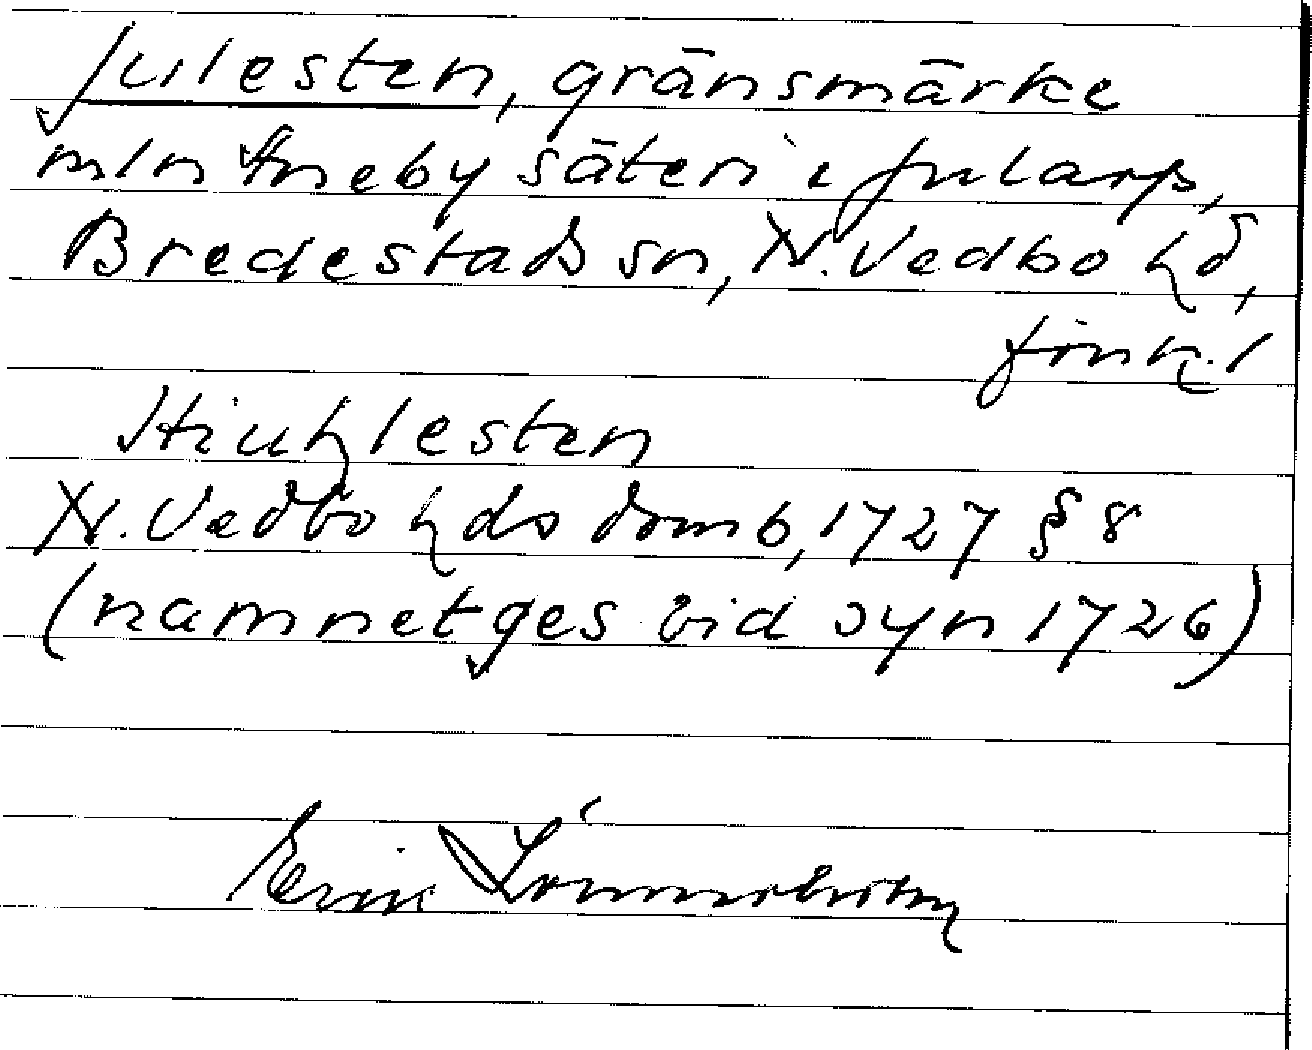 Julesten, gränsmärke
mln Aneby säteri i Jularp,
Bredestads sn, N. Vedbo hd,
Jönk. l
Hiuhlesten
N. Vedbo hds domb, 1727 § 8
(namnet ges vid syn 1726)
Erik